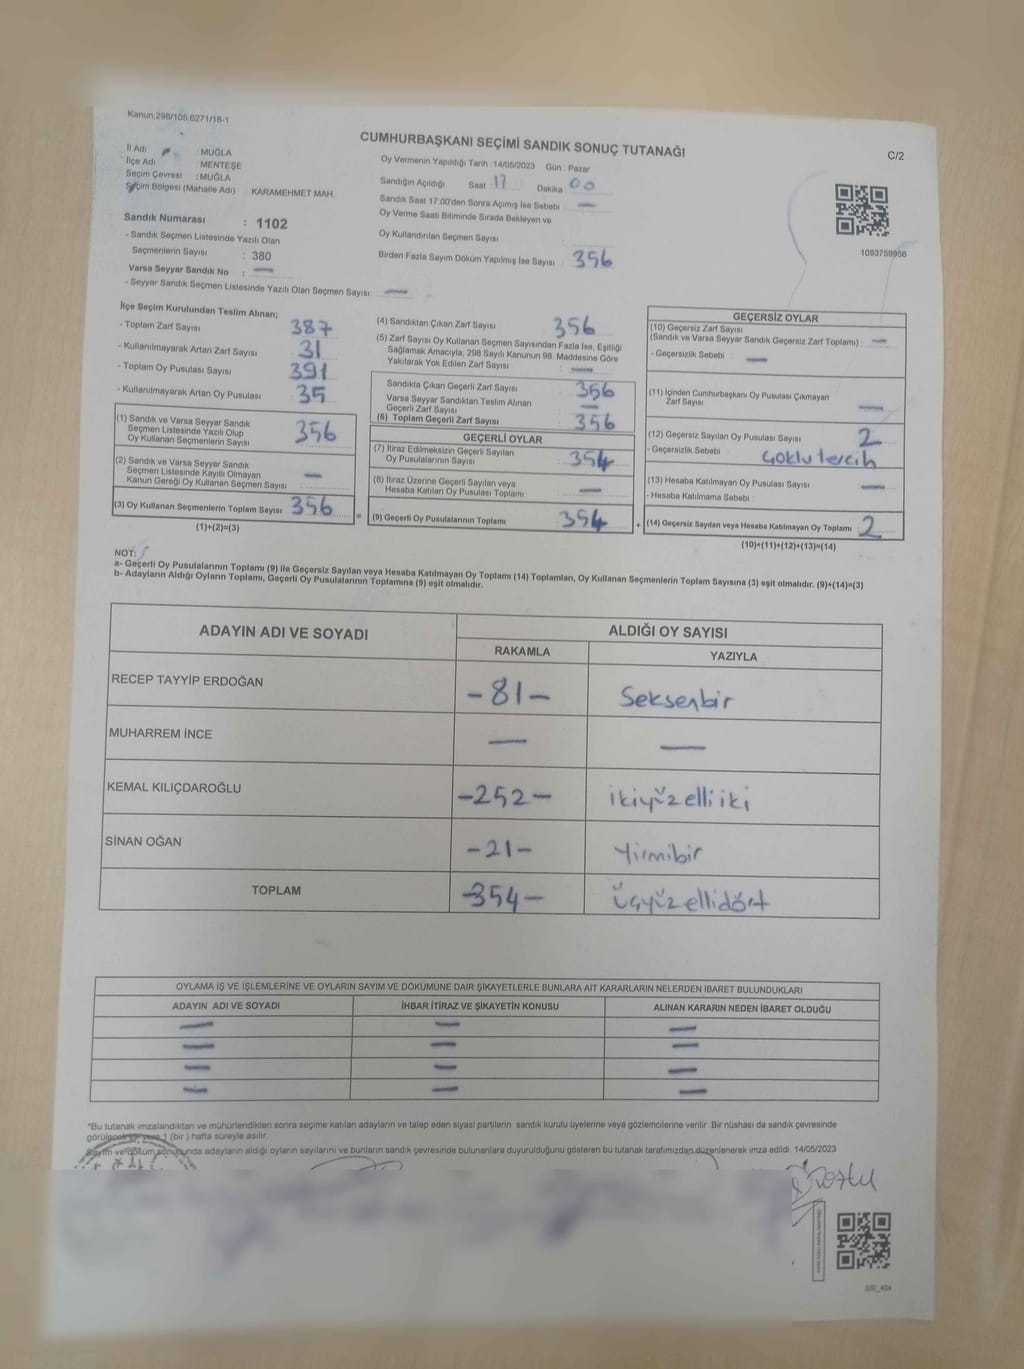 Kanun:298/105,6271/18-1
CUMHURBAŞKANI SEÇİMİ SANDIK SONUÇ TUTANAĞI
C/2
İl Adı MUĞLA
İlçe Adı MENTEŞE
Seçim Çevresi :MUĞLA
Seçim Bölgesi (Mahalle Adı) KARAMEHMET MAH.
Oy Vermenin Yapıldığı Tarih :14/05/2023 Gün : Pazar
Sandığın Açıldığı Saat 17 Dakika 00
Sandık Saat 17.00'den Sonra Açımış İse Sebebi —
Oy Verme Saati Bitiminde Sırada Bekleyen ve
Oy Kullandırılan Seçmen Sayısı :
Birden Fazla Sayım Döküm Yapılmış İse Sayısı : 356
1093759956
Sandık Numarası : 1102
- Sandık Seçmen Listesinde Yazılı Olan
Seçmenlerin Sayısı : 380
Varsa Seyyar Sandık No : —
- Seyyar Sandık Seçmen Listesinde Yazılı Olan Seçmen Sayısı: —
İlçe Seçim Kurulundan Teslim Alınan;
- Toplam Zarf Sayısı 387
- Kullanılmayarak Artan Zarf Sayısı 31
- Toplam Oy Pusulası Sayısı 391
- Kullanılmayarak Artan Oy Pusulası 35
(1) Sandık ve Varsa Seyyar Sandık
Seçmen Listesinde Yazılı Olup
Oy Kullanan Seçmenlerin Sayısı 356
(2) Sandık ve Varsa Seyyar Sandık
Seçmen Listesinde Kayıtlı Olmayan
Kanun Gereği Oy Kullanan Seçmen Sayısı —
(3) Oy Kullanan Seçmenlerin Toplam Sayısı 356
(1)+(2)=(3)
(4) Sandıktan Çıkan Zarf Sayısı 356
(5) Zarf Sayısı Oy Kullanan Seçmen Sayısından Fazla İse, Eşitliği
Sağlamak Amacıyla, 298 Sayılı Kanunun 98. Maddesine Göre
Yakılarak Yok Edilen Zarf Sayısı —
Sandıkta Çıkan Geçerli Zarf Sayısı 356
Varsa Seyyar Sandıktan Teslim Alınan
Geçerli Zarf Sayısı —
(6) Toplam Geçerli Zarf Sayısı 356
GEÇERLİ OYLAR
(7) İtiraz Edilmeksizin Geçerli Sayılan
Oy Pusulalarının Sayısı 354
(8) İtiraz Üzerine Geçerli Sayılan veya
Hesaba Katılan Oy Pusulası Toplamı —
(9) Geçerli Oy Pusulalarının Toplamı 354
=
+
GEÇERSİZ OYLAR
(10) Geçersiz Zarf Sayısı
(Sandık ve Varsa Seyyar Sandık Geçersiz Zarf Toplamı) : —
- Geçersizlik Sebebi : —
(11) İçinden Cumhurbaşkanı Oy Pusulası Çıkmayan
Zarf Sayısı —
(12) Geçersiz Sayılan Oy Pusulası Sayısı 2
- Geçersizlik Sebebi : Çoklu tercih
(13) Hesaba Katılmayan Oy Pusulası Sayısı —
- Hesaba Katılmama Sebebi :
(14) Geçersiz Sayılan veya Hesaba Katılmayan Oy Toplamı 2
(10)+(11)+(12)+(13)=(14)
NOT:
a- Geçerli Oy Pusulalarının Toplamı (9) ile Geçersiz Sayılan veya Hesaba Katılmayan Oy Toplamı (14) Toplamları, Oy Kullanan Seçmenlerin Toplam Sayısına (3) eşit olmalıdır. (9)+(14)=(3)
b- Adayların Aldığı Oyların Toplamı, Geçerli Oy Pusulalarının Toplamına (9) eşit olmalıdır.
ADAYIN ADI VE SOYADI ALDIĞI OY SAYISI
RAKAMLA YAZIYLA
RECEP TAYYİP ERDOĞAN -81- Seksenbir
MUHARREM İNCE — —
KEMAL KILIÇDAROĞLU -252- ikiyüzelliiki
SİNAN OĞAN -21- Yirmibir
TOPLAM -354- Üçyüzellidört
OYLAMA İŞ VE İŞLEMLERİNE VE OYLARIN SAYIM VE DÖKÜMÜNE DAİR ŞİKAYETLERLE BUNLARA AİT KARARLARIN NELERDEN İBARET BULUNDUKLARI
ADAYIN ADI VE SOYADI İHBAR İTİRAZ VE ŞİKAYETİN KONUSU ALINAN KARARIN NEDEN İBARET OLDUĞU
— — —
— — —
— — —
— — —
*Bu tutanak imzalandıktan ve mühürlendikten sonra seçime katılan adayların ve talep eden siyasi partilerin sandık kurulu üyelerine veya gözlemcilerine verilir .Bir nüshası da sandık çevresinde
görülecek bir yere 1 (bir ) hafta süreyle asılır.
Sayım ve döküm sonucunda adayların aldığı oyların sayılarını ve bunların sandık çevresinde bulunanlara duyurulduğunu gösteren bu tutanak tarafımızdan düzenlenerek imza edildi. 14/05/2023